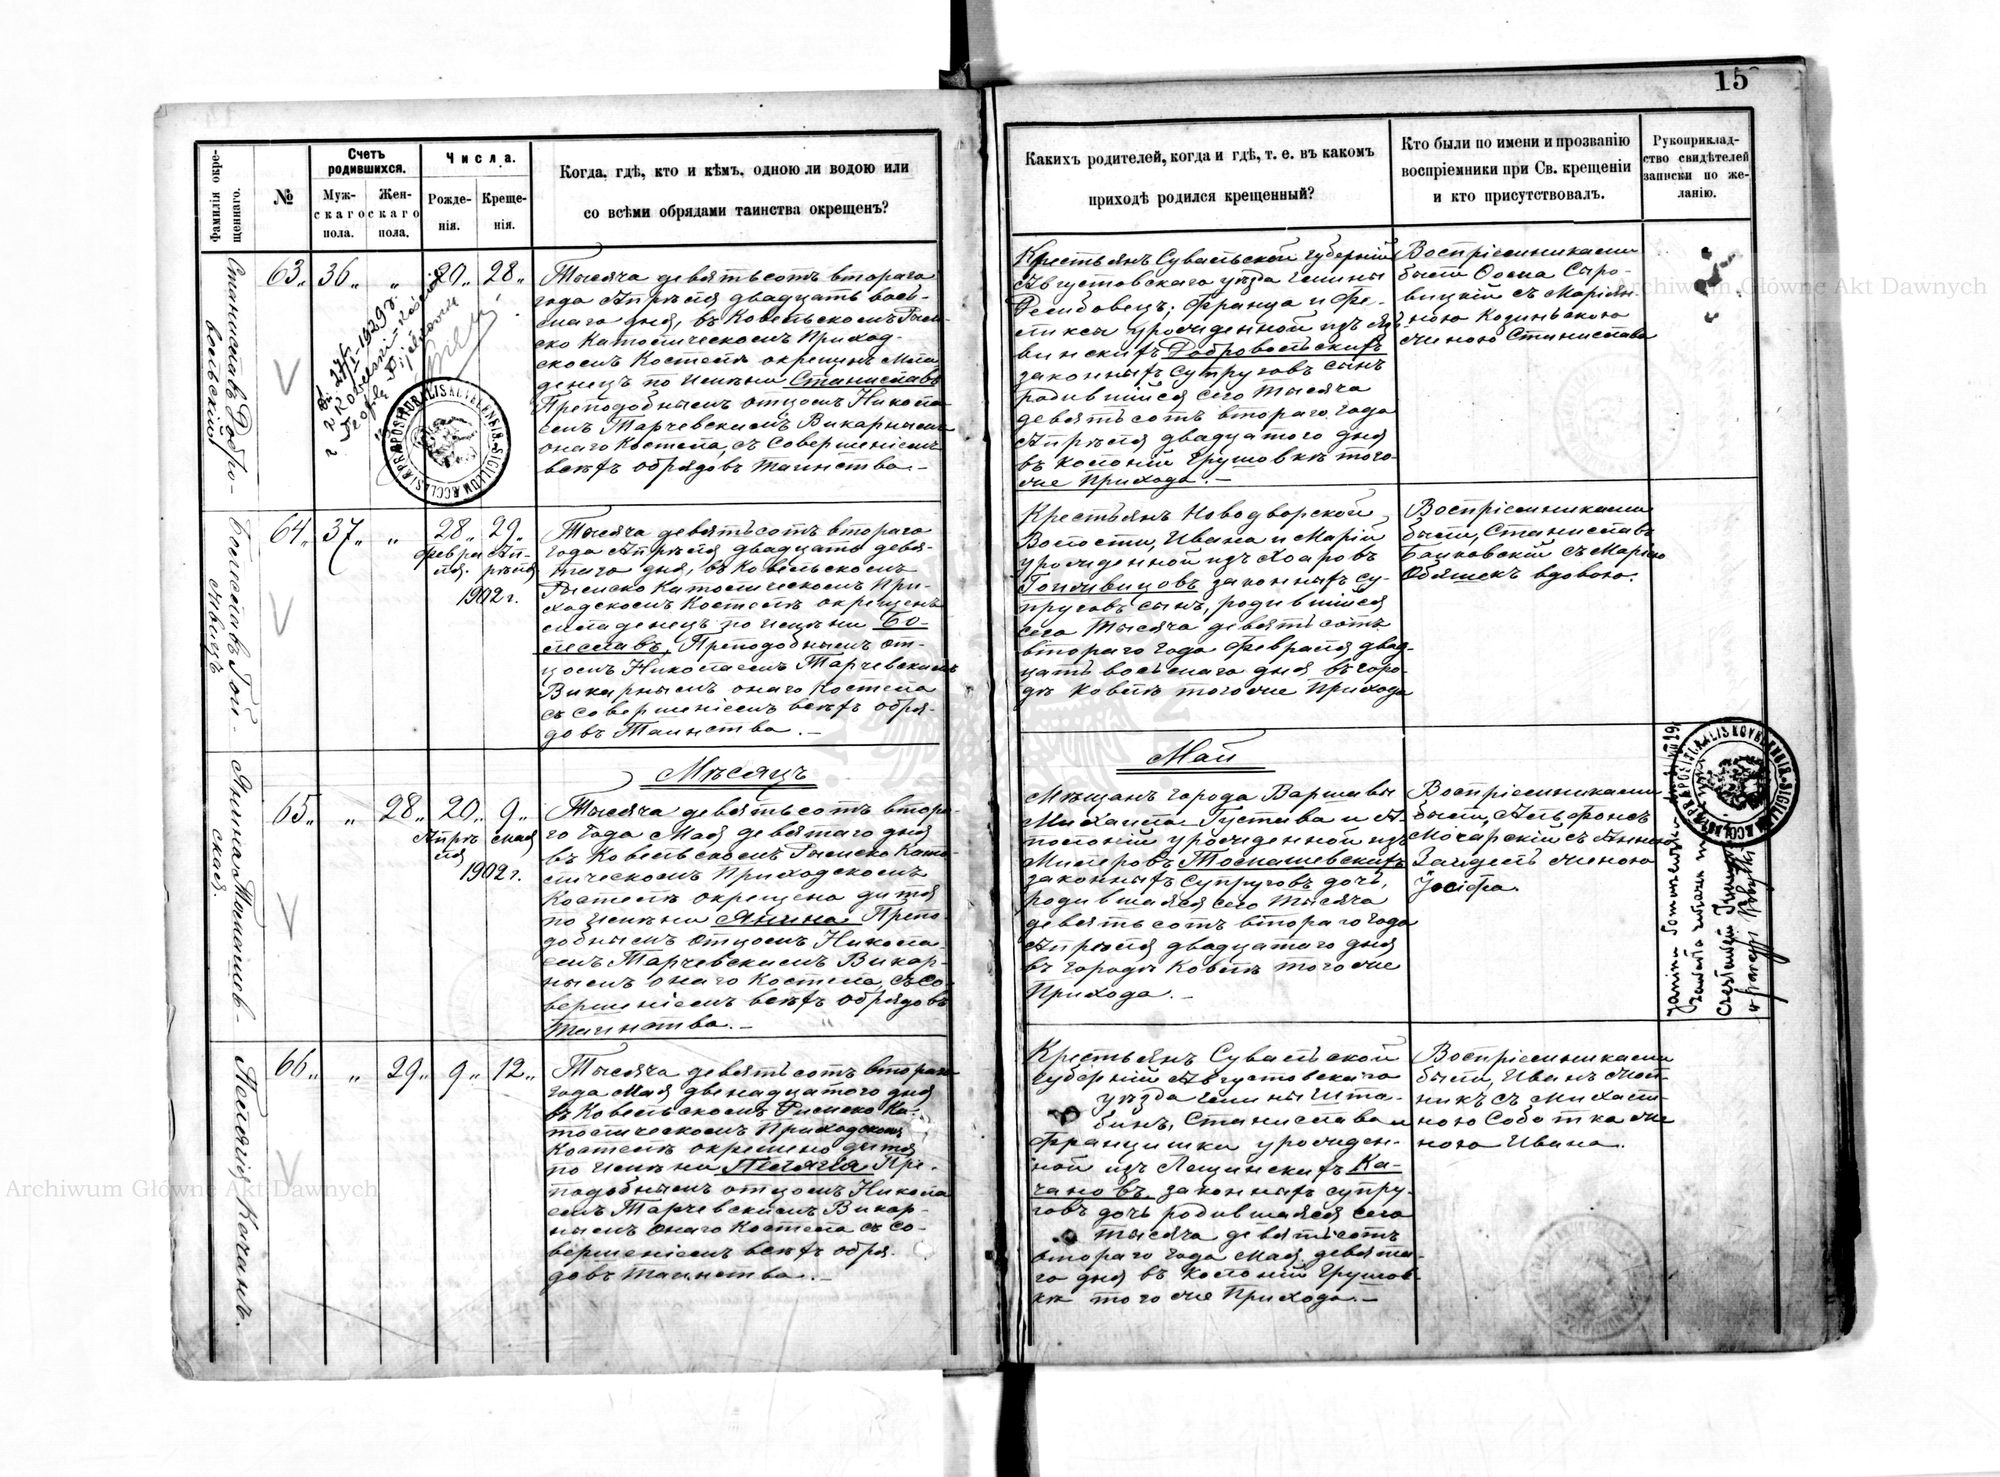 15
Фамилія окре-
щеннаго.
№
Счетъ
родившихся.
Муж-
скаго
пола.
Жен-
скаго
пола.
Числа.
Рожде-
нія.
Креще-
нія.
Когда, гдѣ, кто и кѣмъ, одною ли водою или
со всѣми обрядами таинства окрещенъ?
Какихъ родителей, когда и гдѣ, т. е. въ какомъ
приходѣ родился крещенный?
Кто были по имени и прозванію
воспріемники при Св. крещеніи
и кто присутствовалъ.
Рукоприклад-
ство свидѣтелей
записки по же-
ланію.
Станиславъ Добро-
вольскій
63 " 36 " " 20 " 28 "
Тысяча девятьсотъ втораго
года Апрѣля двадцать вось-
маго дня, въ Ковельскомъ Рим-
ско Католическомъ Приход-
скомъ Костелѣ окрещенъ мла-
денецъ по имени Станиславъ
Преподобнымъ отцомъ Никола-
емъ Тарчевскимъ Викарнымъ
онаго Костела, съ совершеніемъ
всѣхъ обрядовъ таинства. —
Крестьянъ Сувалской губерніи
Августовскаго уѣзда гмины
Франца и Фе-
ликсы урожденной изъ
Добровольскихъ
законныхъ супруговъ сынъ
родившійся сего тысяча
девятьсотъ втораго года
Апрѣля двадцатого дня
въ колоніи Грушовкѣ того
же Прихода. —
Воспріемниками
были Сыро-
вицкій съ Маріан-
ною
женою Станислава
Болеславъ Гой-
64 " 37 " " 28 " 29 "
февра-
ля.
Ап-
рѣля
1902 г.
Тысяча девятьсотъ втораго
года Апрѣля двадцать девя-
таго дня, въ Ковельскомъ
Римско Католическомъ При-
ходскомъ Костелѣ окрещенъ
младенецъ по имени Бо-
леславъ, Преподобнымъ от-
цомъ Николаемъ Тарчевскимъ
Викарнымъ онаго Костела
съ совершеніемъ всѣхъ обря-
довъ Таинства. —
Крестьянъ Новодворской
Волости, Ивана и Маріи
урожденной изъ
законныхъ су-
пруговъ сынъ, родившійся
сего тысяча девятьсотъ
втораго года Февраля двад-
цать восьмаго дня въ горо-
дѣ Ковелѣ того же Прихода
Воспріемниками
были, Станиславъ
съ Маріею
вдовою.
Мѣсяцъ
Май
Янина Томашев-
ская.
65 " " 28 " 20 " 9 "
Апрѣ-
ля
мая
1902 г.
Тысяча девятьсотъ втора-
го года Мая девятаго дня
въ Ковельскомъ Римско Като-
лическомъ Приходскомъ
Костелѣ окрещена дитя
по имени Янина Препо-
добнымъ отцомъ Никола-
емъ Тарчевскимъ Викар-
нымъ онаго Костела, съ со-
вершеніемъ всѣхъ обрядовъ
таинства. —
Мѣщанъ города Варшавы
Михаила-Густава и А-
полоніи урожденной изъ
Миллеровъ Томашевскихъ
законныхъ супруговъ дочь,
родившаяся сего тысяча
девятьсотъ втораго года
Апрѣля двадцатого дня
въ городѣ Ковелѣ того же
Прихода. —
Воспріемниками
были, Альфонсъ
Мочарскій съ Анною
женою
Іосифа.
Пелягія Качанъ.
66 " " 29 " 9 " 12 "
Тысяча девятьсотъ втораго
года Мая двенадцатого дня
въ Ковельскомъ Римско Ка-
толическомъ Приходскомъ
Костелѣ окрещено дитя
по имени Пелагія Пре-
подобнымъ отцомъ Никола-
емъ Тарчевскимъ Викар-
нымъ онаго Костела съ со-
вершеніемъ всѣхъ обря-
довъ таинства. —
Крестьянъ Сувалской
губерніи Августовскаго
уѣзда гмины Шта-
бинъ, Станислава и
Францишки урожден-
ной изъ Лещинскихъ Ка-
чановъ, законныхъ супру-
говъ дочь родившаяся сего
тысяча девятьсотъ
втораго года Мая девята-
го дня въ колоніи Грушов-
кѣ того же Прихода. —
Воспріемниками
были, Иванъ
съ Михали-
ною Соботка же-
ною Ивана.
Archiwum Główne Akt Dawnych
Archiwum Główne Akt Dawnych